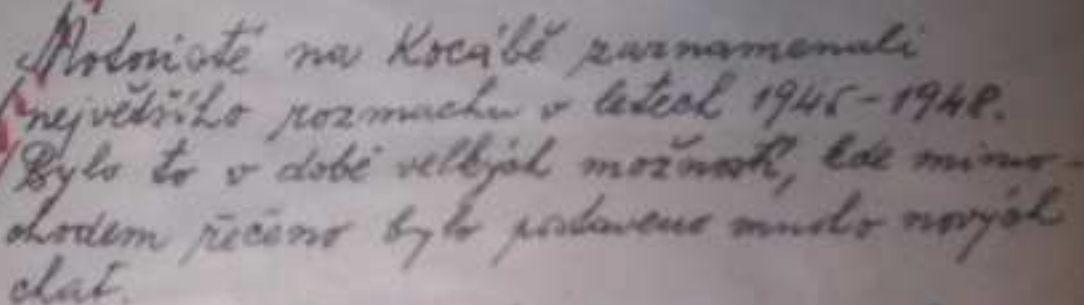 Motoristé na Kocábě zaznamenali
největšího rozmachu v letech 1945-1948.
Bylo to v době velkých možností, kde mimo-
chodem řečeno bylo postaveno mnoho nových
chat.